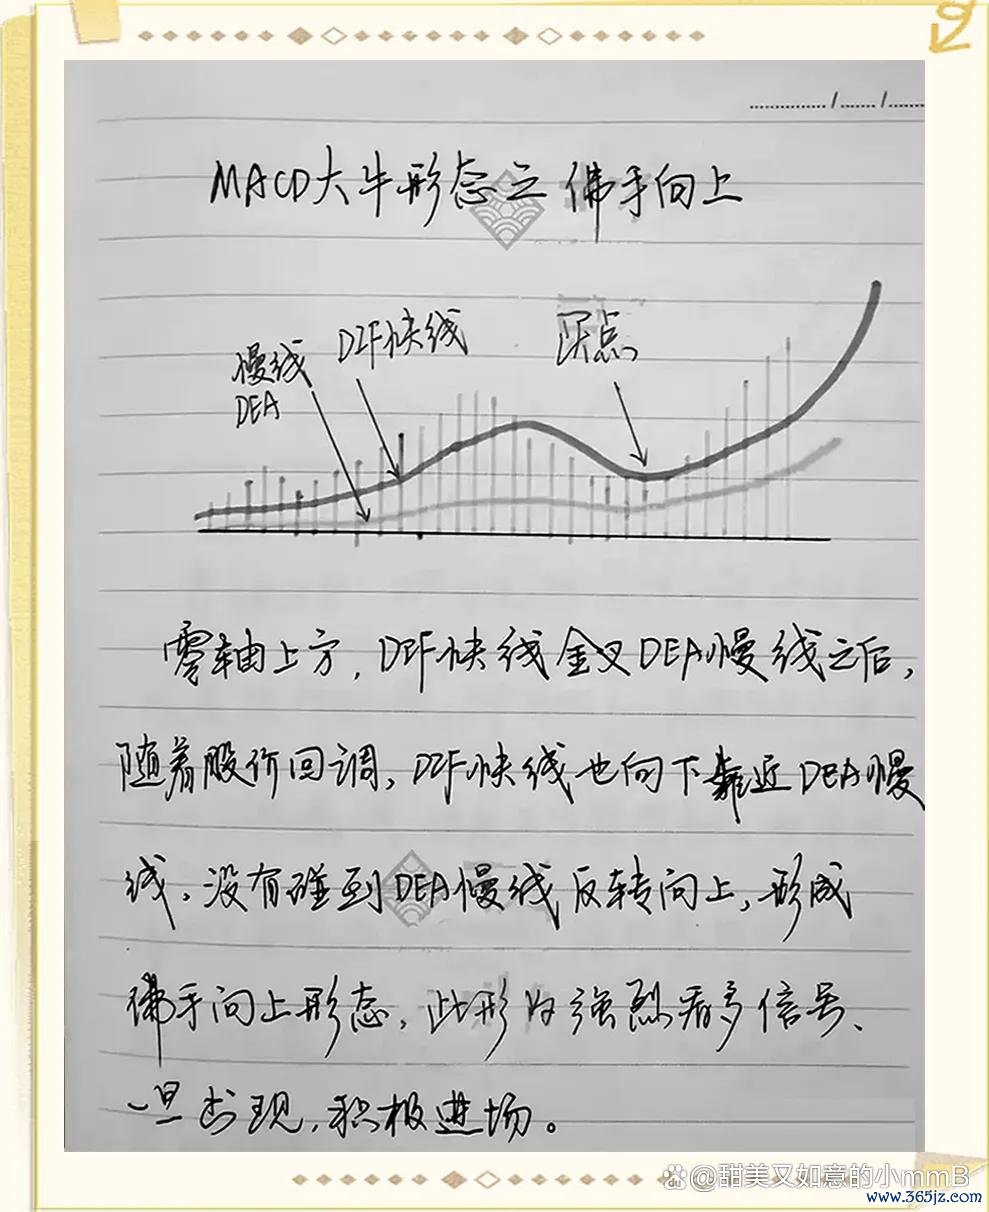 ............../......./.......
MACD大牛形态之佛手向上
慢线
DEA
DIF快线
买点
零轴上方,DIF快线金叉DEA慢线之后,
随着股价回调,DIF快线也向下靠近DEA慢
线,没有碰到DEA慢线反转向上,形成
佛手向上形态,此形为强烈看多信号、
一旦出现,积极进场。
@甜美又如意的小mmB
www.365jz.com